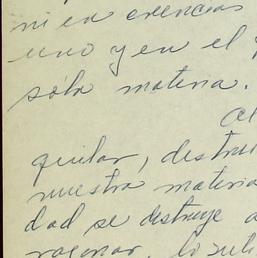 ni en creencias
uno y en el
sóla materia.
quilar, destru
nuestra materia
dad se destruye a
razonar, lo sub